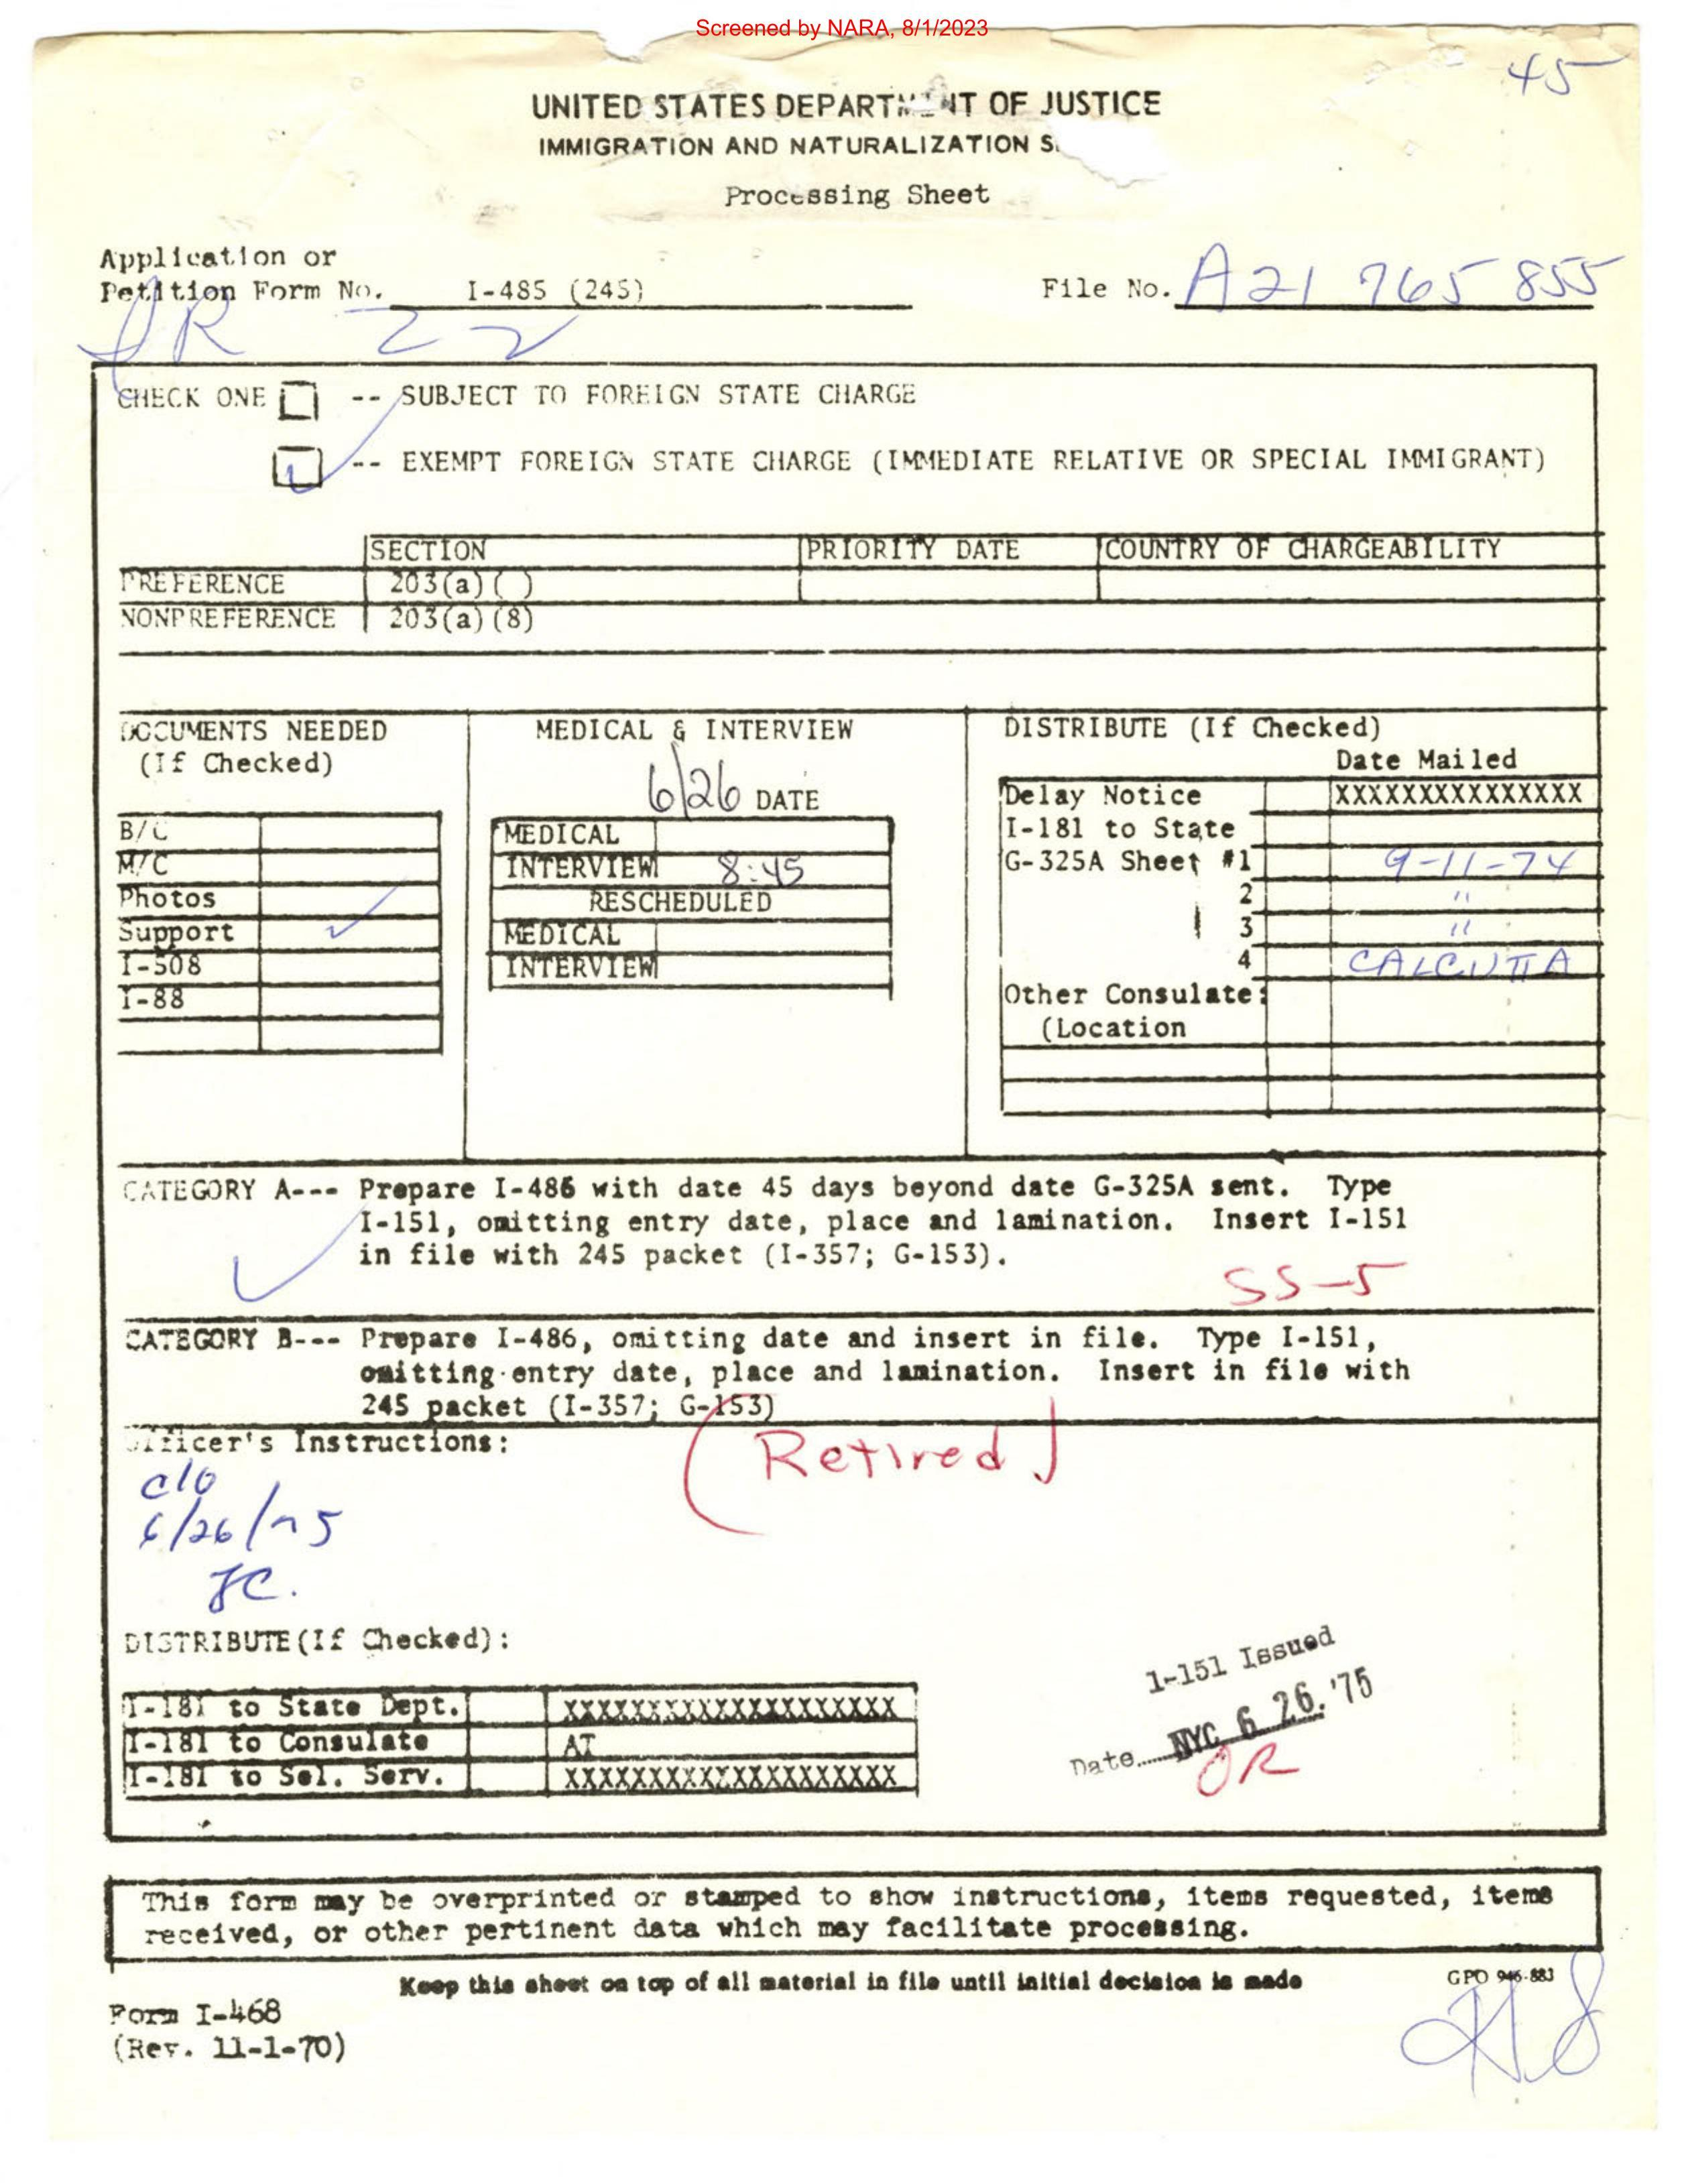 Screened by NARA, 8/1/2023
45
UNITED STATES DEPARTMENT OF JUSTICE
IMMIGRATION AND NATURALIZATION S
Processing Sheet
Application or
Petition Form No. I-485 (245)
File No. A21 765 855
IR 22
CHECK ONE -- SUBJECT TO FOREIGN STATE CHARGE
-- EXEMPT FOREIGN STATE CHARGE (IMMEDIATE RELATIVE OR SPECIAL IMMIGRANT)
SECTION PRIORITY DATE COUNTRY OF CHARGEABILITY
PREFERENCE 203(a)( )
NONPREFERENCE 203(a)(8)
DOCUMENTS NEEDED
(If Checked)
B/C
M/C
Photos
Support
I-508
I-88
MEDICAL & INTERVIEW
6/26 DATE
MEDICAL
INTERVIEW 8:45
RESCHEDULED
MEDICAL
INTERVIEW
DISTRIBUTE (If Checked)
Date Mailed
Delay Notice XXXXXXXXXXXXXXX
I-181 to State
G-325A Sheet #1 9-11-74
2 "
3 "
4 CALCUTTA
Other Consulate:
(Location
CATEGORY A--- Prepare I-486 with date 45 days beyond date G-325A sent. Type
I-151, omitting entry date, place and lamination. Insert I-151
in file with 245 packet (I-357; G-153).
SS-5
CATEGORY B--- Prepare I-486, omitting date and insert in file. Type I-151,
omitting entry date, place and lamination. Insert in file with
245 packet (I-357; G-153)
Officer's Instructions:
(Retired)
c/o
6/26/75
JC.
DISTRIBUTE(If Checked):
I-181 to State Dept. XXXXXXXXXXXXXXXXXXXX
I-181 to Consulate AT
I-181 to Sel. Serv. XXXXXXXXXXXXXXXXXXXX
1-151 Issued
Date NYC 6 26. '75
OR
This form may be overprinted or stamped to show instructions, items requested, items
received, or other pertinent data which may facilitate processing.
Keep this sheet on top of all material in file until initial decision is made
GPO 946-883
Form I-468
(Rev. 11-1-70)